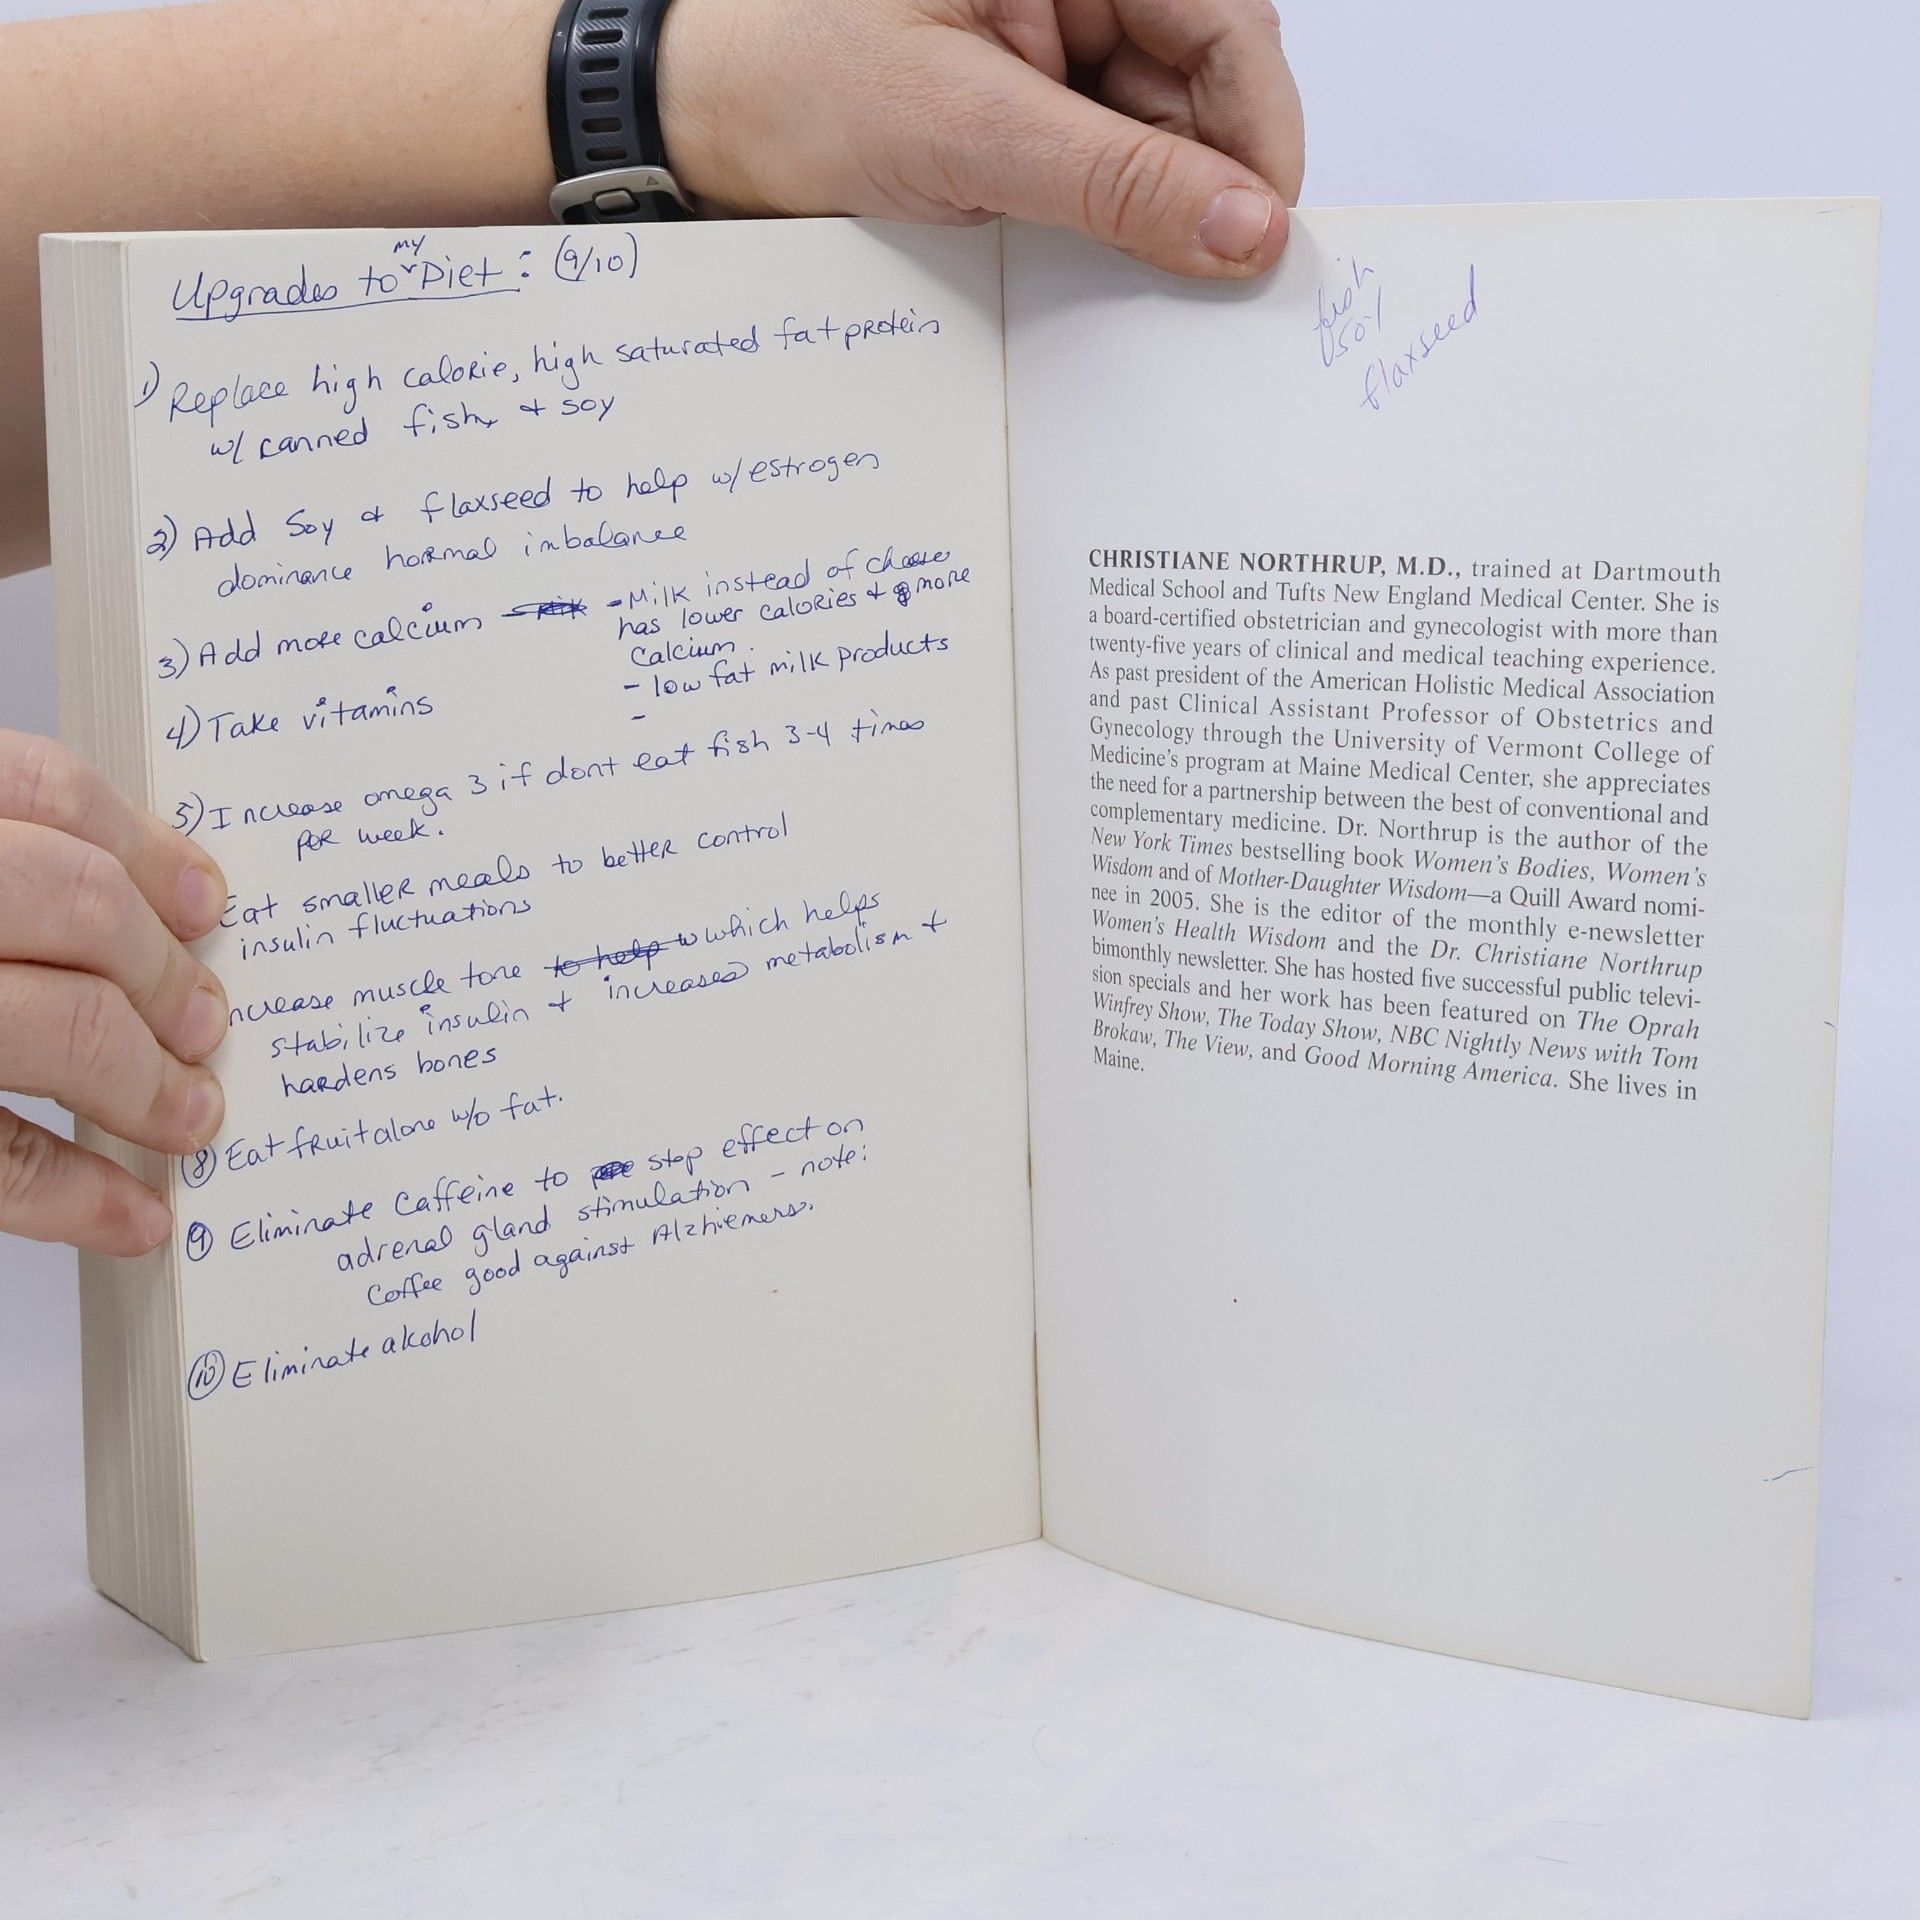 Upgrades to my Diet : (9/10)
1) Replace high calorie, high saturated fat protein
w/ canned fish & soy
2) Add Soy & flaxseed to help w/ estrogen
dominance hormal imbalance
3) Add more calcium - Milk instead of cheese
has lower calories & more
Calcium.
- low fat milk products
-
4) Take vitamins
5) Increase omega 3 if dont eat fish 3-4 times
per week.
Eat smaller meals to better control
insulin fluctuations
ncrease muscle tone to help w which helps
stabilize insulin & increases metabolism &
hardens bones
8 Eat fruit alone w/o fat.
9 Eliminate Caffeine to stop effect on
adrenal gland stimulation - note:
Coffee good against Alzhiemers.
10 Eliminate alcohol
fish
soy
flaxseed
CHRISTIANE NORTHRUP, M.D., trained at Dartmouth
Medical School and Tufts New England Medical Center. She is
a board-certified obstetrician and gynecologist with more than
twenty-five years of clinical and medical teaching experience.
As past president of the American Holistic Medical Association
and past Clinical Assistant Professor of Obstetrics and
Gynecology through the University of Vermont College of
Medicine's program at Maine Medical Center, she appreciates
the need for a partnership between the best of conventional and
complementary medicine. Dr. Northrup is the author of the
New York Times bestselling book Women's Bodies, Women's
Wisdom and of Mother-Daughter Wisdom—a Quill Award nomi-
nee in 2005. She is the editor of the monthly e-newsletter
Women's Health Wisdom and the Dr. Christiane Northrup
bimonthly newsletter. She has hosted five successful public televi-
sion specials and her work has been featured on The Oprah
Winfrey Show, The Today Show, NBC Nightly News with Tom
Brokaw, The View, and Good Morning America. She lives in
Maine.